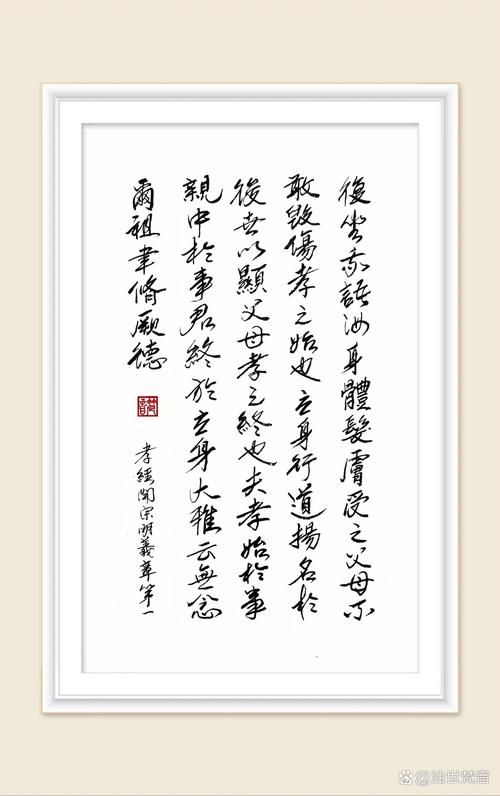 復坐吾語汝身體髮膚受之父母不
敢毀傷孝之始也立身行道揚名於
後世以顯父母孝之終也夫孝始於事
親中於事君終於立身大雅云無念
爾祖聿脩厥德
孝經開宗明義章第一
@浊世梵音